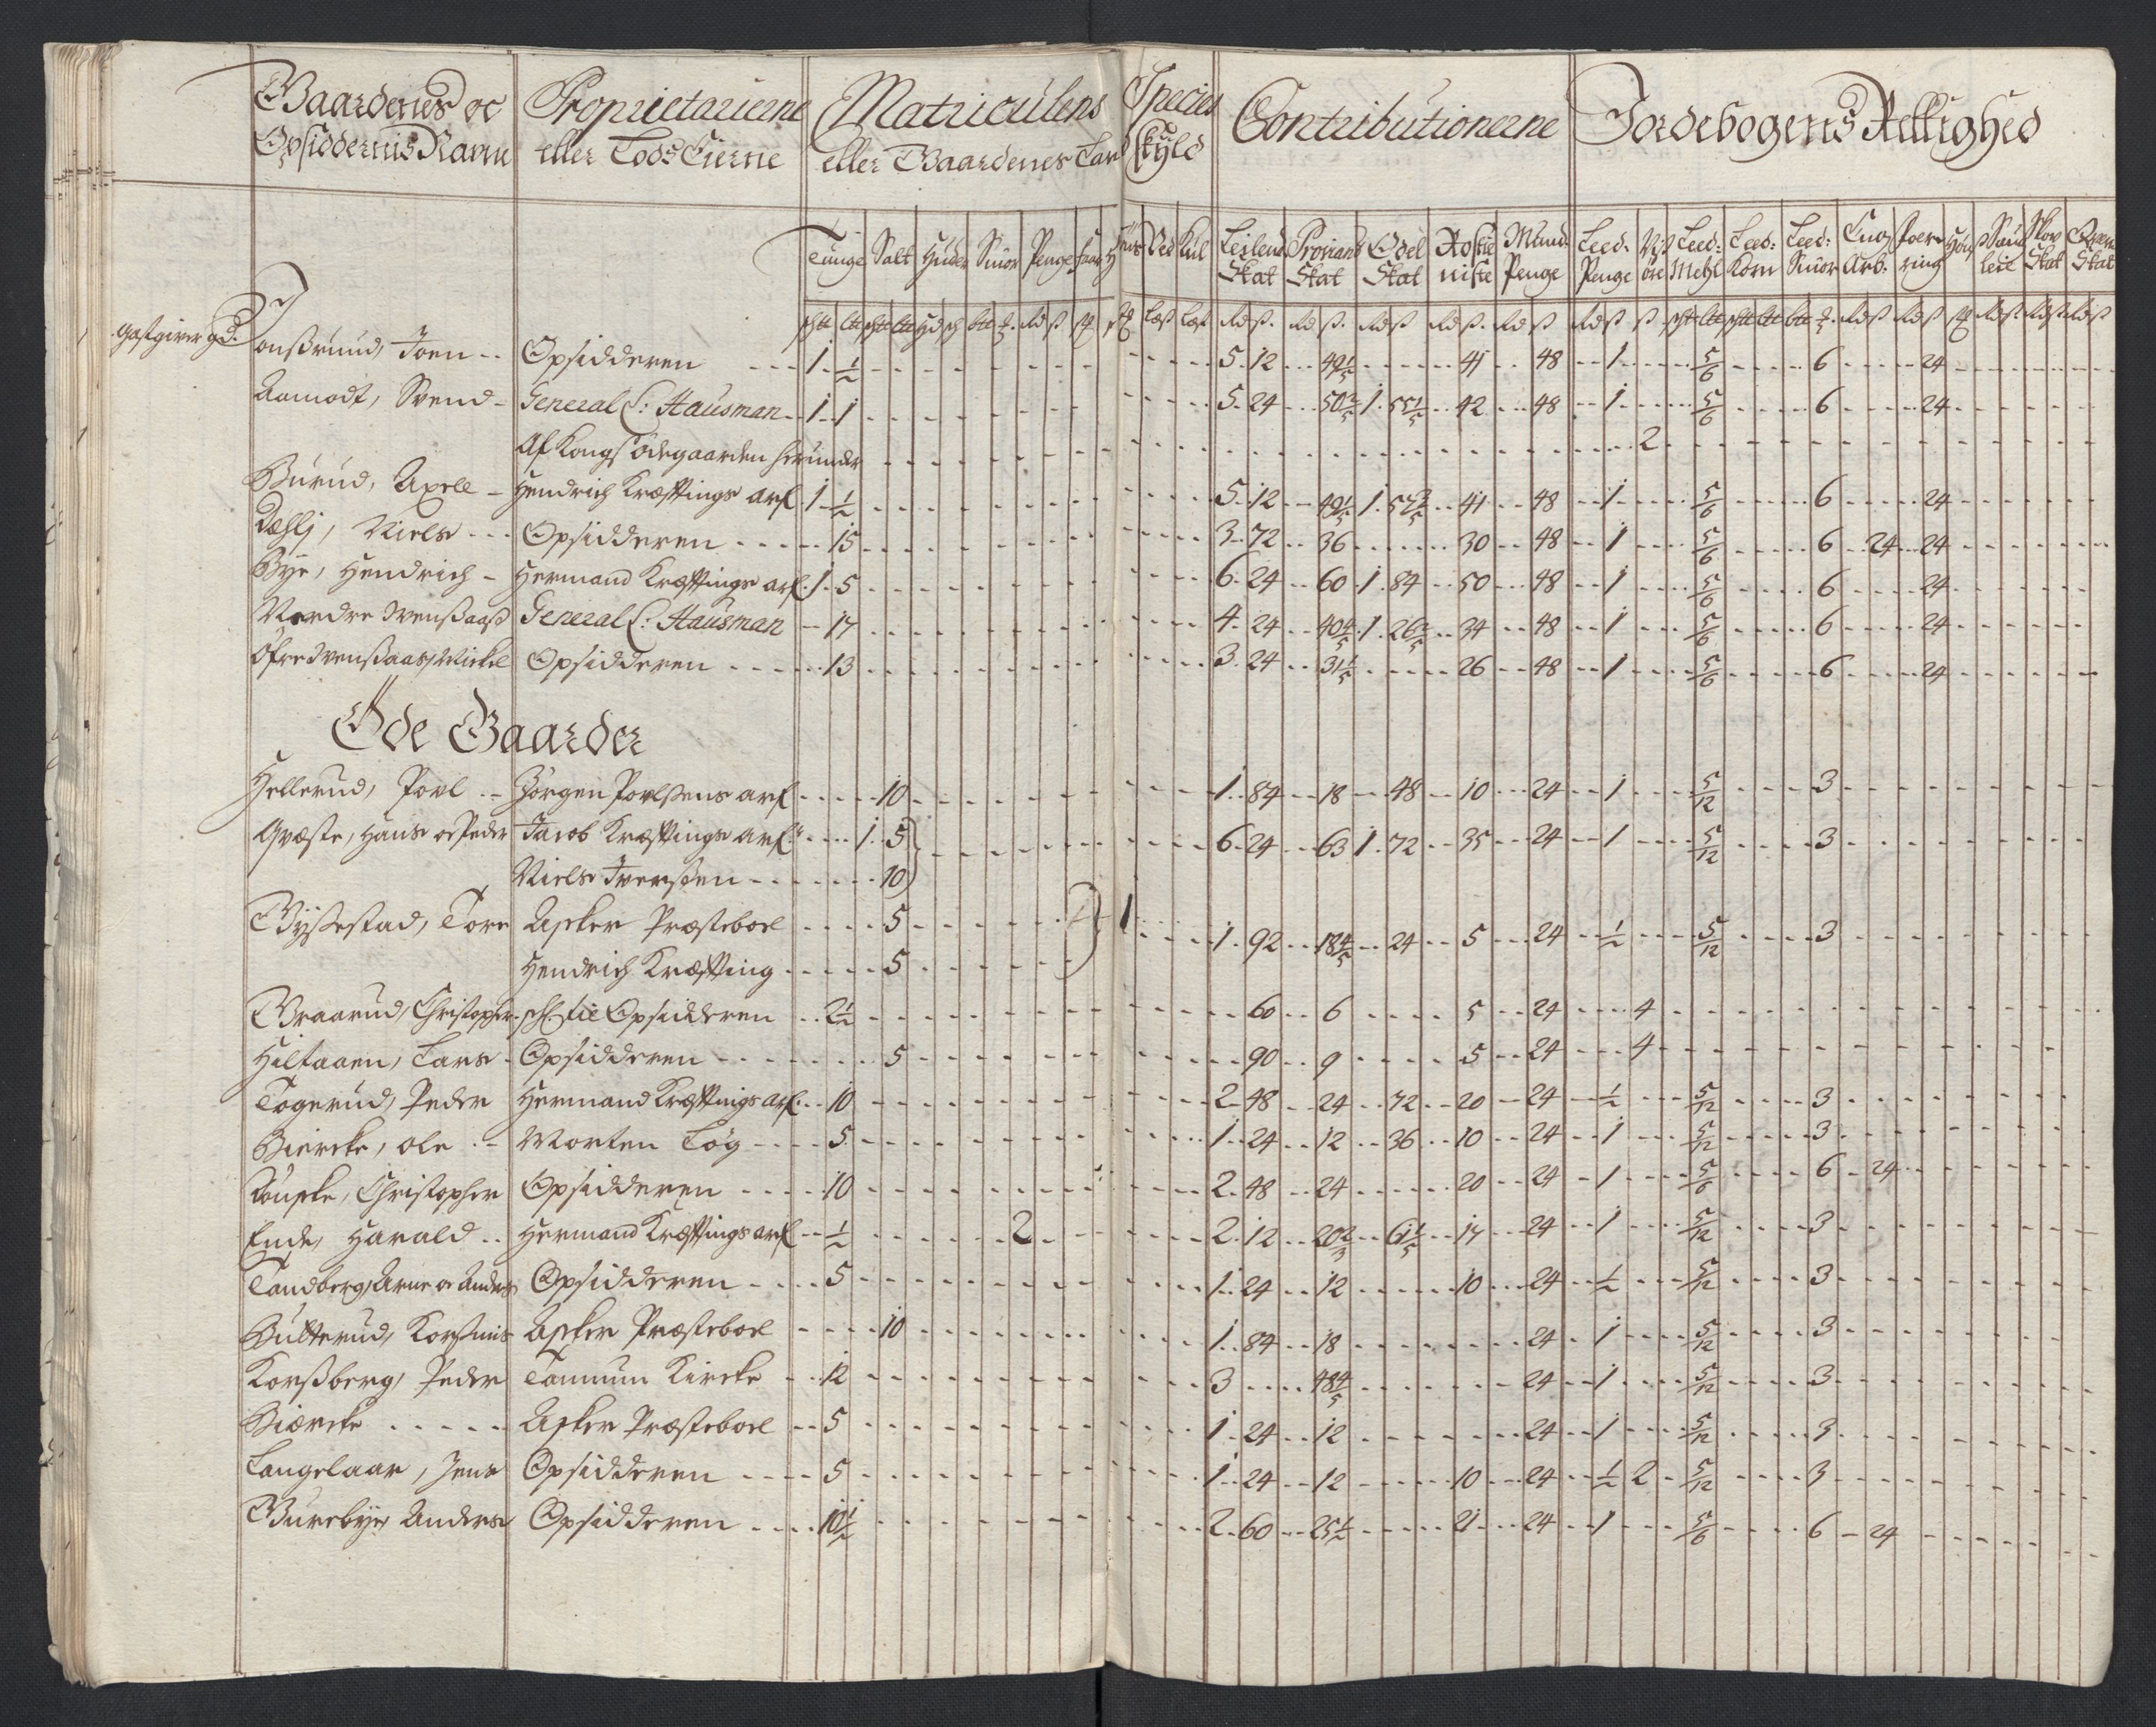 Gaardernes oc Opsiddernis Nafne | Proprietarierne eller Lods Eierne | Matriculens eller Gaardenes Land | Species Skyld | Contributionerne | Jordebogens Rettighed
Tunge | Salt | Huder | Smör | Penge | Huus | Ved | Kul | Leilend Skat | Proviant Skat | Odel Skat | Rostie niste | Mund. Penge | Leed. Penge | Viß öre | Leed: Mehl | Leed: Korn | Leed: Smör | Arb: | Foering | Höns | Skov Skat | Skat
Gastgiver gd. Jonßrund, Joen | Opsidderen | 1 ½ | 5 12 | 49 1/5 | 41 | 48 | 1 | 5/6 | 6 | 24
Aamodt, Svend | General C: Hausman | 1 1 | 5 24 | 50 2/5 | 1 55 1/5 | 42 | 48 | 1 | 5/6 | 6 | 24
Af Kongs ödegaarden herunder | 2
Burud, Axell | Hendrich Kræftings arf | 1 ½ | 5 12 | 49 1/5 | 1 | 41 | 48 | 1 | 5/6 | 6 | 24
Dæhlj, Niels | Opsidderen | 15 | 3 72 | 36 | 30 | 48 | 1 | 5/6 | 6 | 24 | 24
Bye, Hendrich | Hermand Kræftings arf. | 1 5 | 6 24 | 60 | 1 84 | 50 | 48 | 1 | 5/6 | 6 | 24
Nordre Svenßaaß | General C: Hausman | 17 | 4 24 | 40 4/5 | 1 26 2/5 | 34 | 48 | 1 | 5/6 | 6 | 24
Öfre Svenßaas, Mickel | Opsidderen | 13 | 3 24 | 31 1/5 | 26 | 48 | 1 | 5/6 | 6 | 24
Öde Gaarder
Hellerud, Povl | Jörgen Povelsens arf | 10 | 1 84 | 18 | 48 | 10 | 24 | 1 | 5/12 | 3
Gvæste, Hans oc Peder | Jacob Kræftings arf: | 1 5 | 6 24 | 63 | 1 72 | 35 | 24 | 1 | 5/12 | 3
Niels Iversen | 10
Gyßestad, Tore | Asker Præsteboel | 5 | 1 | 1 92 | 18 4/5 | 24 | 5 | 24 | ½ | 5/12 | 3
Hendrich Kræfting | 5
Graarud, Christopher | Opsidderen | 2½ | 60 | 6 | 5 | 24 | 4
Hiltaaen, Lars | Opsidderen | 5 | 90 | 9 | 5 | 24 | 4
Togerud, Peder | Hermand Kræftings arf. | 10 | 2 48 | 24 | 72 | 20 | 24 | ½ | 5/12 | 3
Biercke, Ole | Morten Log | 5 | 1 24 | 12 | 36 | 10 | 24 | 1 | 5/12 | 3
Christopher | Opsidderen | 10 | 2 48 | 24 | 20 | 24 | 1 | 5/6 | 6 | 24
Ende, Harald | Hermand Kræftings arf | ½ | 2 | 2 12 | 20 2/5 | 61 1/5 | 17 | 24 | 1 | 5/12 | 3
Tandberg, Arne oc Anders | Opsidderen | 5 | 1 24 | 12 | 10 | 24 | ½ | 5/12 | 3
Bulterud, | Asker Præsteboel | 10 | 1 84 | 18 | 24 | 1 | 5/12 | 3
Korßberg, Peder | Tanum Kircke | 12 | 3 | 48 4/5 | 24 | 1 | 5/12 | 3
Biercke | Asker Præsteboel | 5 | 1 24 | 12 | 24 | 1 | 5/12 | 3
Langelaar, Jens | Opsidderen | 5 | 1 24 | 12 | 10 | 24 | ½ | 2 | 5/12 | 3
Gurebye, Anders | Opsidderen | 10½ | 2 60 | 25 1/5 | 21 | 24 | 1 | 5/6 | 6 | 24